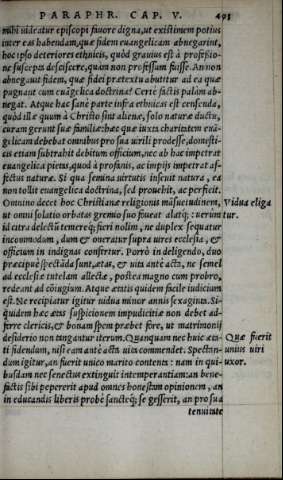 PARAPHR. CAP. V. 491
mihi uideatur episcopi fauore digna, ut existimem potius
inter eas habendam, quæ fidem euangelicam abnegarint,
hoc ipso deteriores ethnicis, quòd grauius est à professio-
ne suscepta desciscere, quàm non professum fuisse. An non
abnegauit fidem, quæ fidei prætextu abutitur ad ea quæ
pugnant cum euāgelica doctrina? Certè factis palàm ab-
negat. Atque hæc sanè parte infra ethnicas est censenda,
quòd illæ quum à Christo sint alienæ, solo naturæ ductu,
curam gerunt suæ familiæ: hæc quæ iuxta charitatem euā-
gelicam debebat omnibus pro sua uirili prodesse, domesti-
cis etiam subtrahit debitum officium, nec ab hac impetrat
euangelica pietas, quod à profanis, ac impijs impetrat af-
fectus naturæ. Si qua semina uirtutis inseuit natura, ea
non tollit euangelica doctrina, sed prouehit, ac perficit.
Omnino decet hoc Christianæ religionis māsuetudinem,
Vidua eliga
ut omni solatio orbatas gremio suo foueat alatq;: uerùm
tur.
id citra delectū temereq; fieri nolim, ne duplex sequatur
incommodum, dum & oneratur supra uires ecclesia, &
officium in indignas confertur. Porrò in deligendo, duo
præcipuè spectāda sunt, ætas, & uitæ antè acta, ne semel
ad ecclesiæ tutelam allectæ, postea magno cum probro,
redeant ad cōiugium. Atque ætatis quidem facile iudicium
est. Ne recipiatur igitur uidua minor annis sexaginta. Si-
quidem hæc ætas suspicionem impudicitiæ non debet ad-
ferre clericis, & bonam spem præbet fore, ut matrimonij
desiderio non tangantur iterum. Quanquam nec huic æta-
Quæ fuerit
ti fidendum, nisi eam antè acta uita commendet. Spectan-
unius uiri
dum igitur, an fuerit unico marito contenta: nam in qui-
uxor.
busdam nec senectus extinguit intemperantiam: an bene-
factis sibi pepererit apud omnes honestam opinionem, an
in educandis liberis probè sanctéq; se gesserit, an pro sua
tenuitate